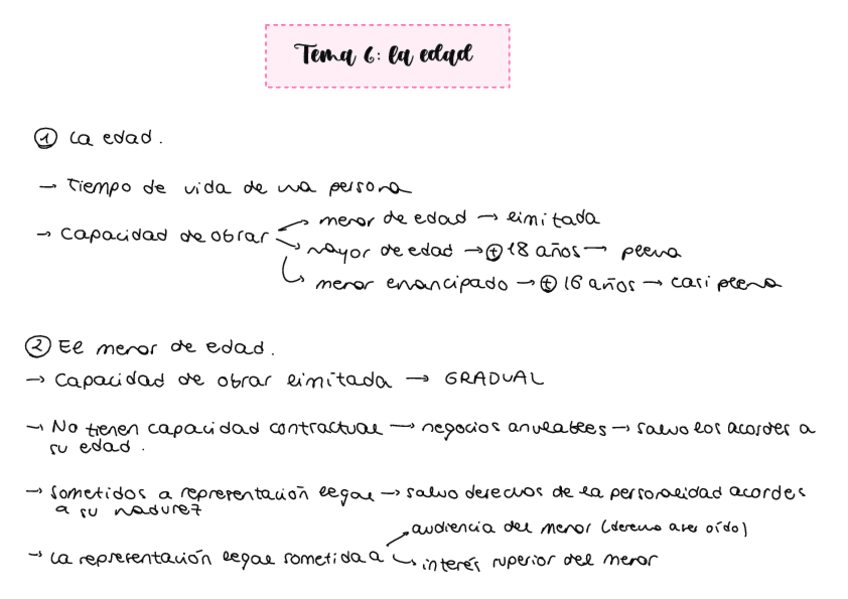 Tema 6: la edad
① La edad.
→ Tiempo de vida de una persona
→ Capacidad de obrar → menor de edad → limitada
→ mayor de edad → ⊕ 18 años → plena
→ menor emancipado → ⊕ 16 años → casi plena
② El menor de edad.
→ Capacidad de obrar limitada → GRADUAL
→ No tienen capacidad contractual → negocios anulables → salvo los acordes a
su edad.
→ Sometidos a representación legal → salvo derechos de la personalidad acordes
a su madurez
→ audiencia del menor (derecho a ser oído)
→ La representación legal sometida a → interés superior del menor